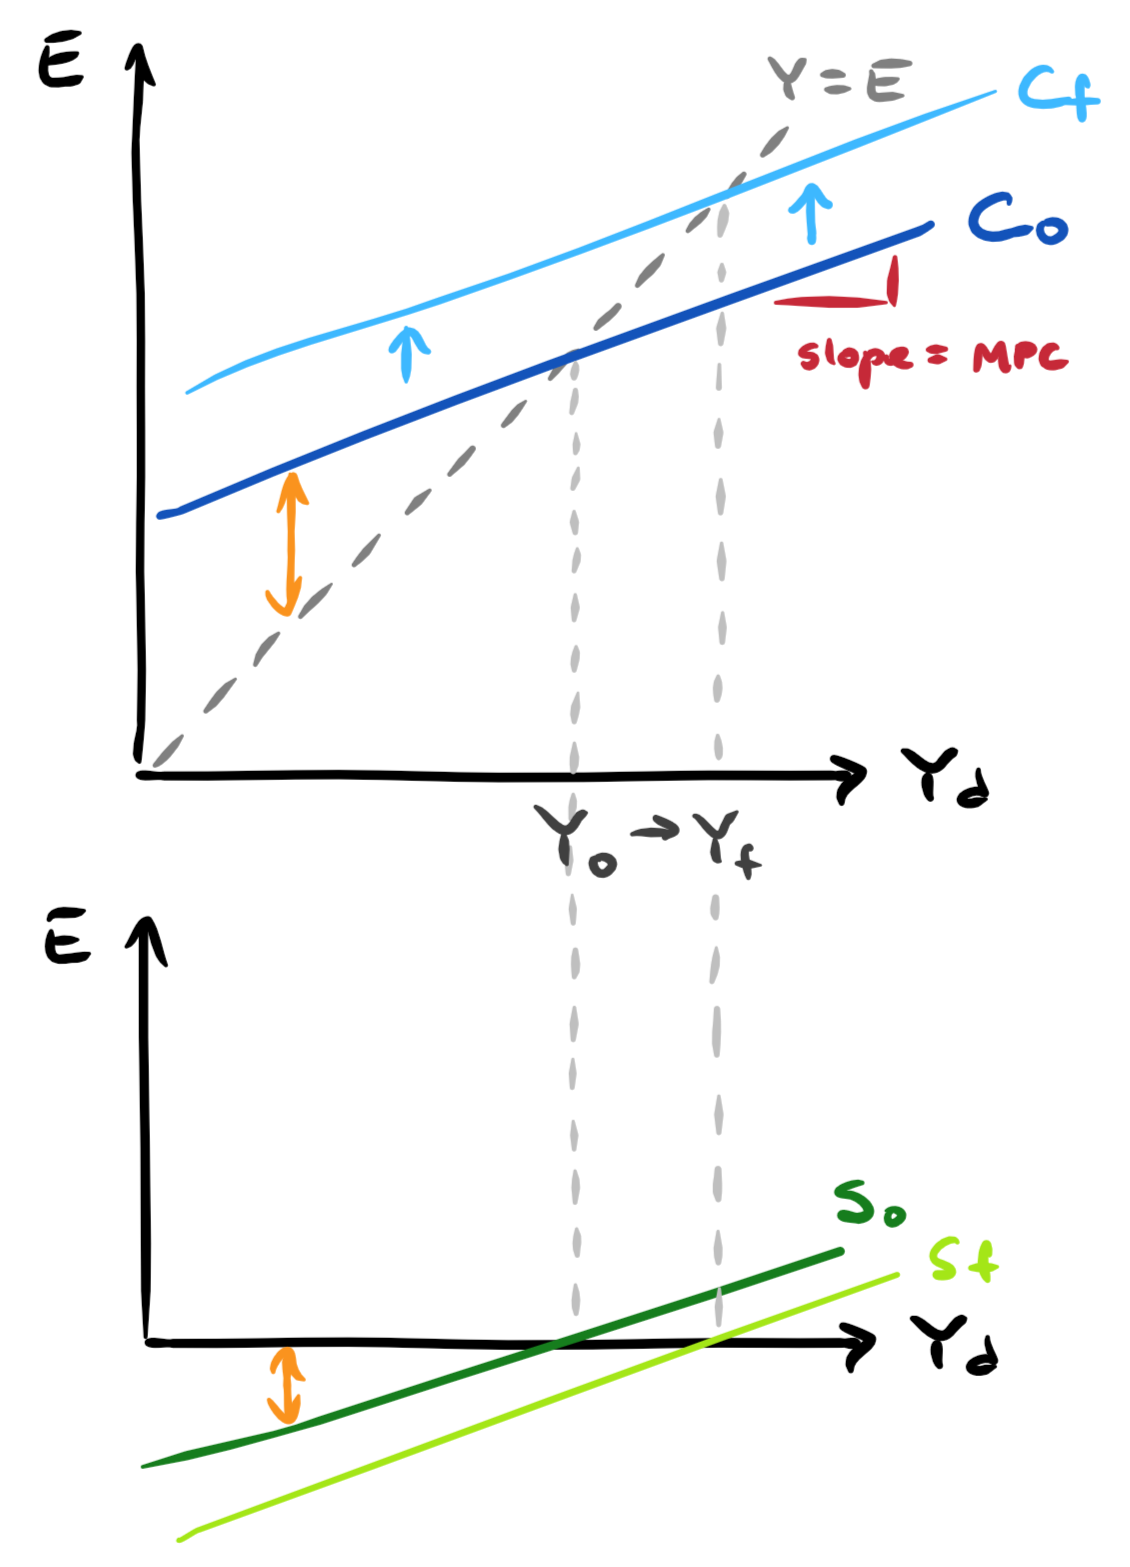 E
Y = E
Cf
Co
slope = MPC
Yd
Yo → Yf
E
So
Sf
Yd